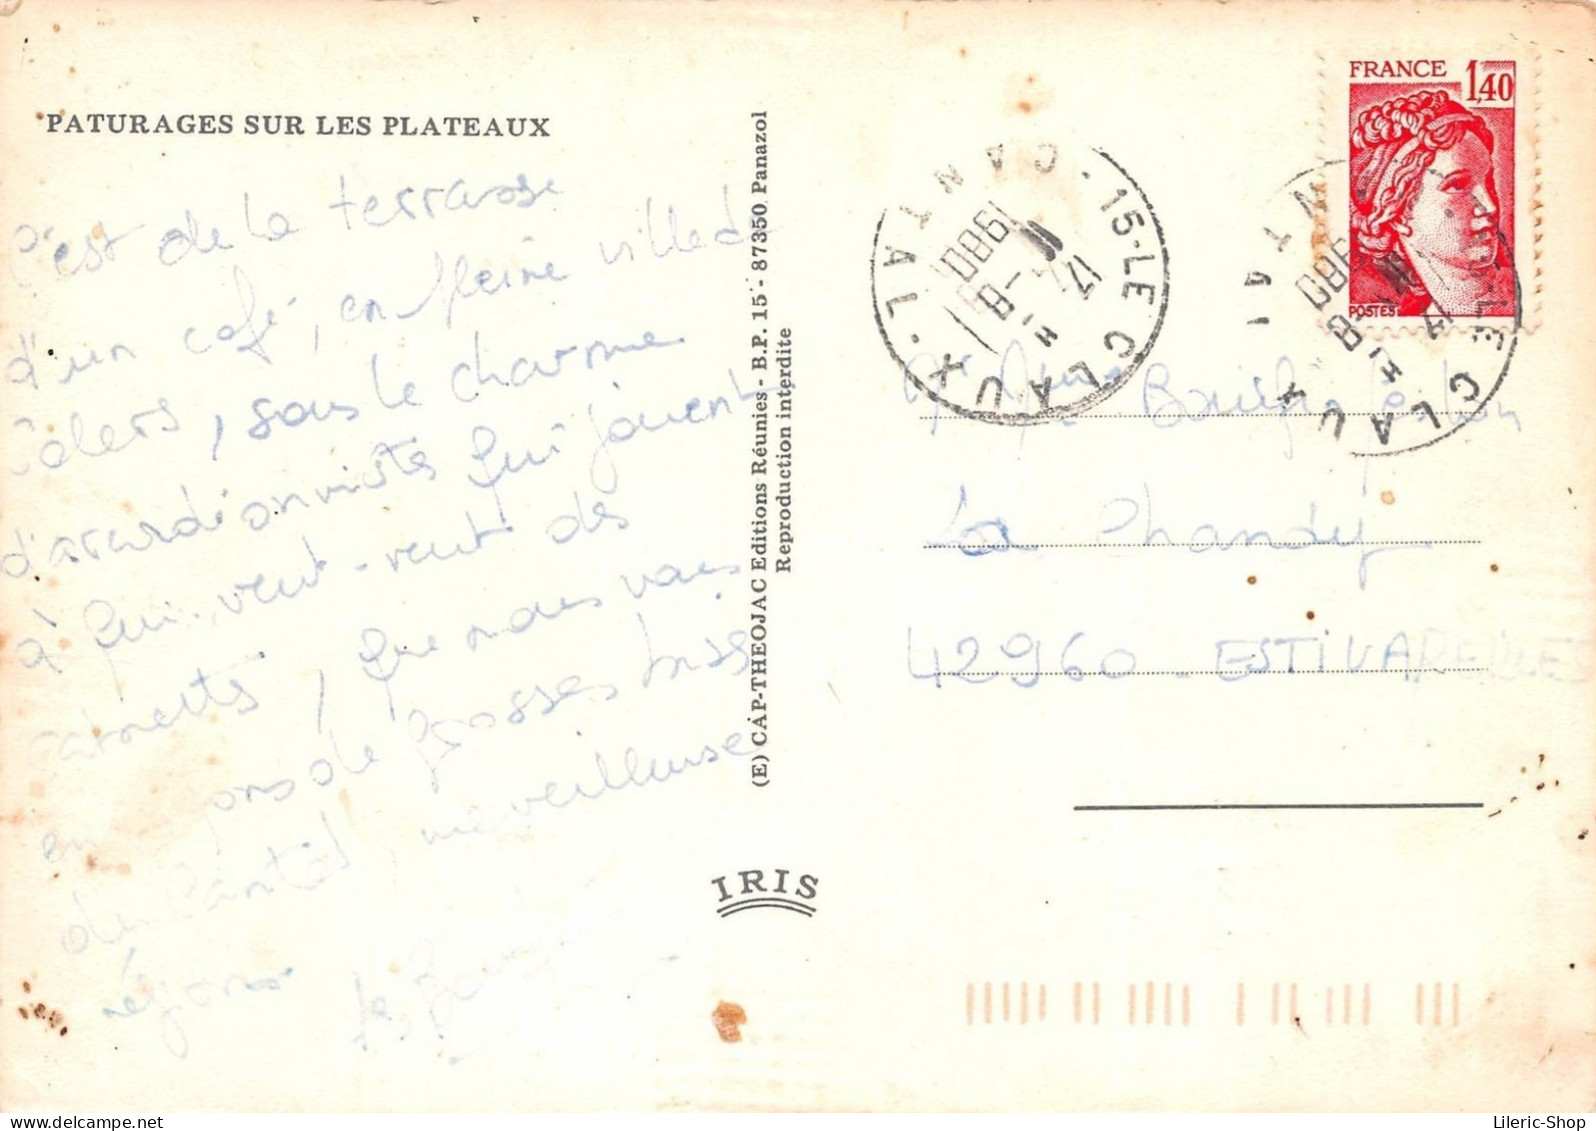 PATURAGES SUR LES PLATEAUX
C'est de la terrasse
d'un café, en pleine ville de
Salers, sous le charme
d'accordéonnistes qui jouent
à qui veut-veut des
que nous vous
de grosses bises
du Cantal, merveilleuse
région
(E) CAP-THEOJAC Editions Réunies - B.P. 15 - 87350 Panazol
Reproduction interdite
IRIS
FRANCE 1,40
POSTES
15-LE CLAUX · CANTAL ·
17 H
-8
1980
15-LE CLAUX CANTAL
17 H
-8
1980
La Chandy
42960 - ESTIVAREILLES
Lileric-Shop